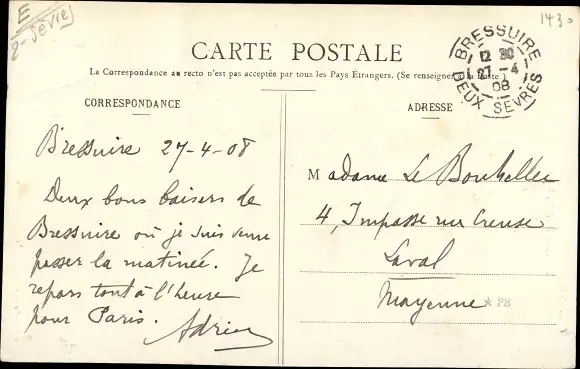 E
2-Sèvres
143
CARTE POSTALE
La Correspondance au recto n'est pas acceptée par tous les Pays Étrangers. (Se renseigner à la Poste.)
BRESSUIRE
12 30
27-4
08
DEUX SEVRES
CORRESPONDANCE
Bressuire 27-4-08
Deux bons baisers de
Bressuire où je suis venu
passer la matinée. Je
repars tout à l'heure
pour Paris.
Adrien
ADRESSE
Madame Le
4, Impasse rue Creuse
Laval
Mayenne